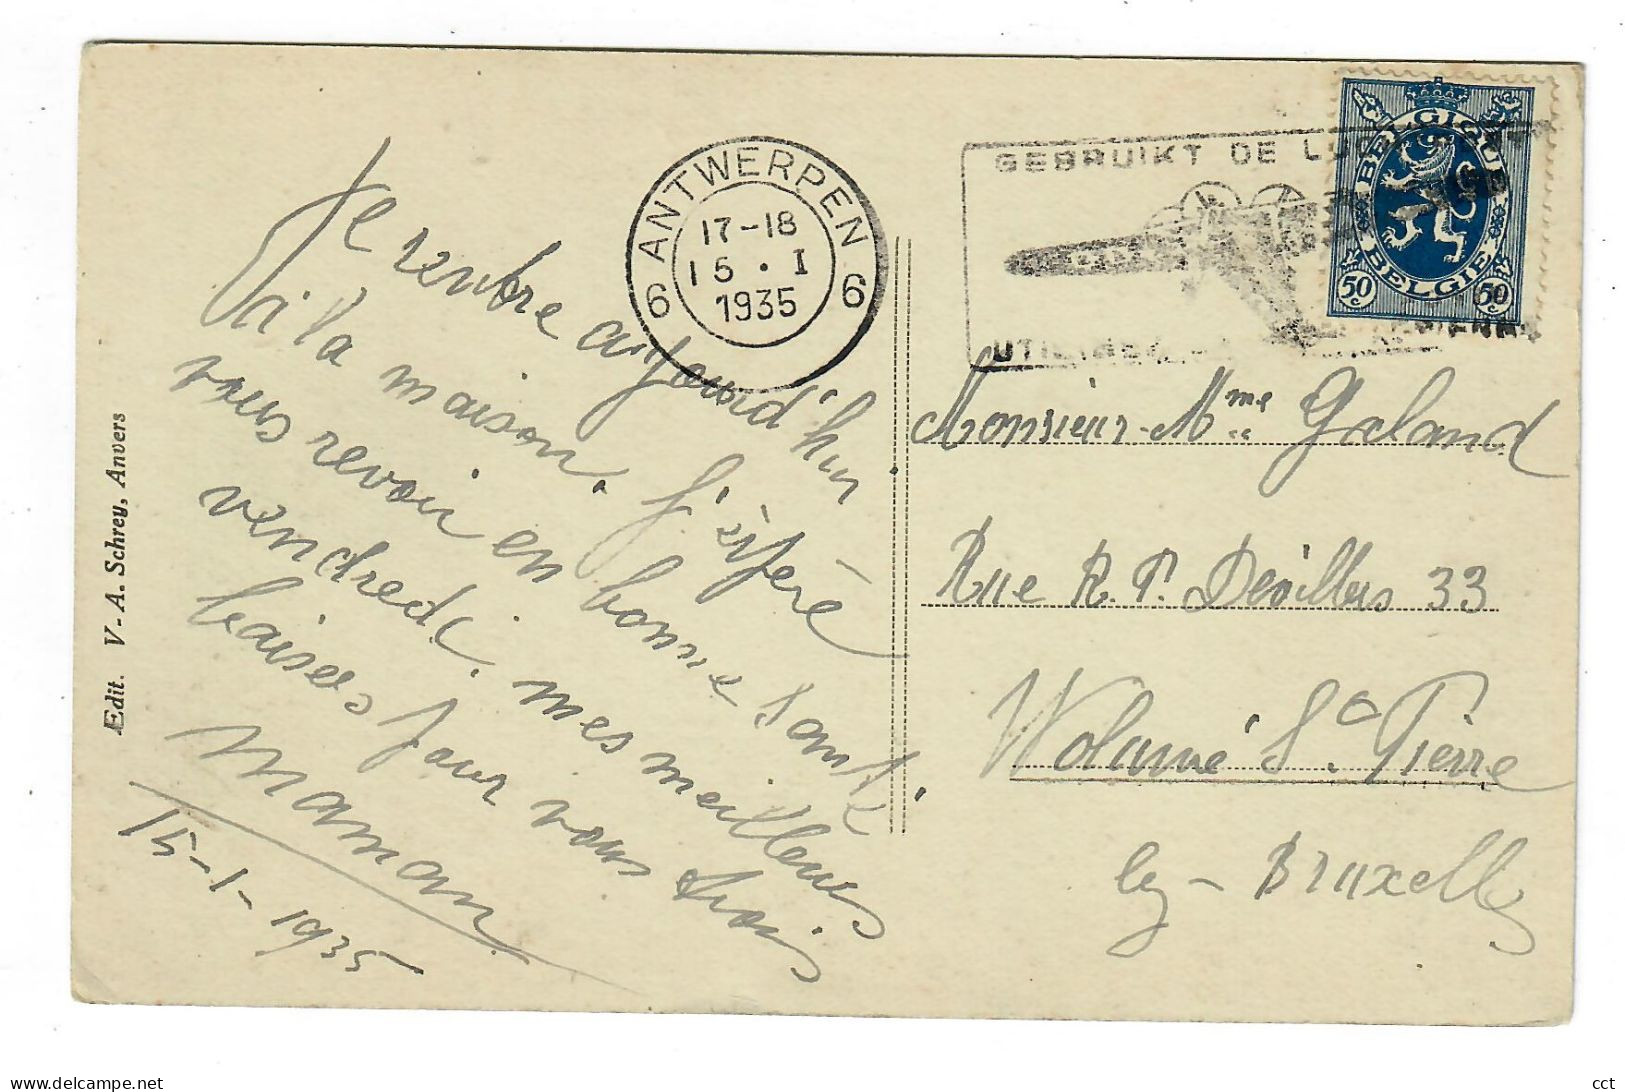 Je rentre aujourd'hui
à la maison. J'espère
vous revoir en bonne santé.
vendredi. mes meilleurs
baisers pour vous trois
Maman
15-1-1935
Ædit. V.-A. Schrey, Anvers
ANTWERPEN
17-18
15 · I
1935
6 6
GEBRUIKT DE
BELGIQUE
BELGIË
50c 50c
Monsieur-Mme Galand
Rue R. P. Devillers 33
Woluwé St. Pierre
lez-Bruxelles
cct